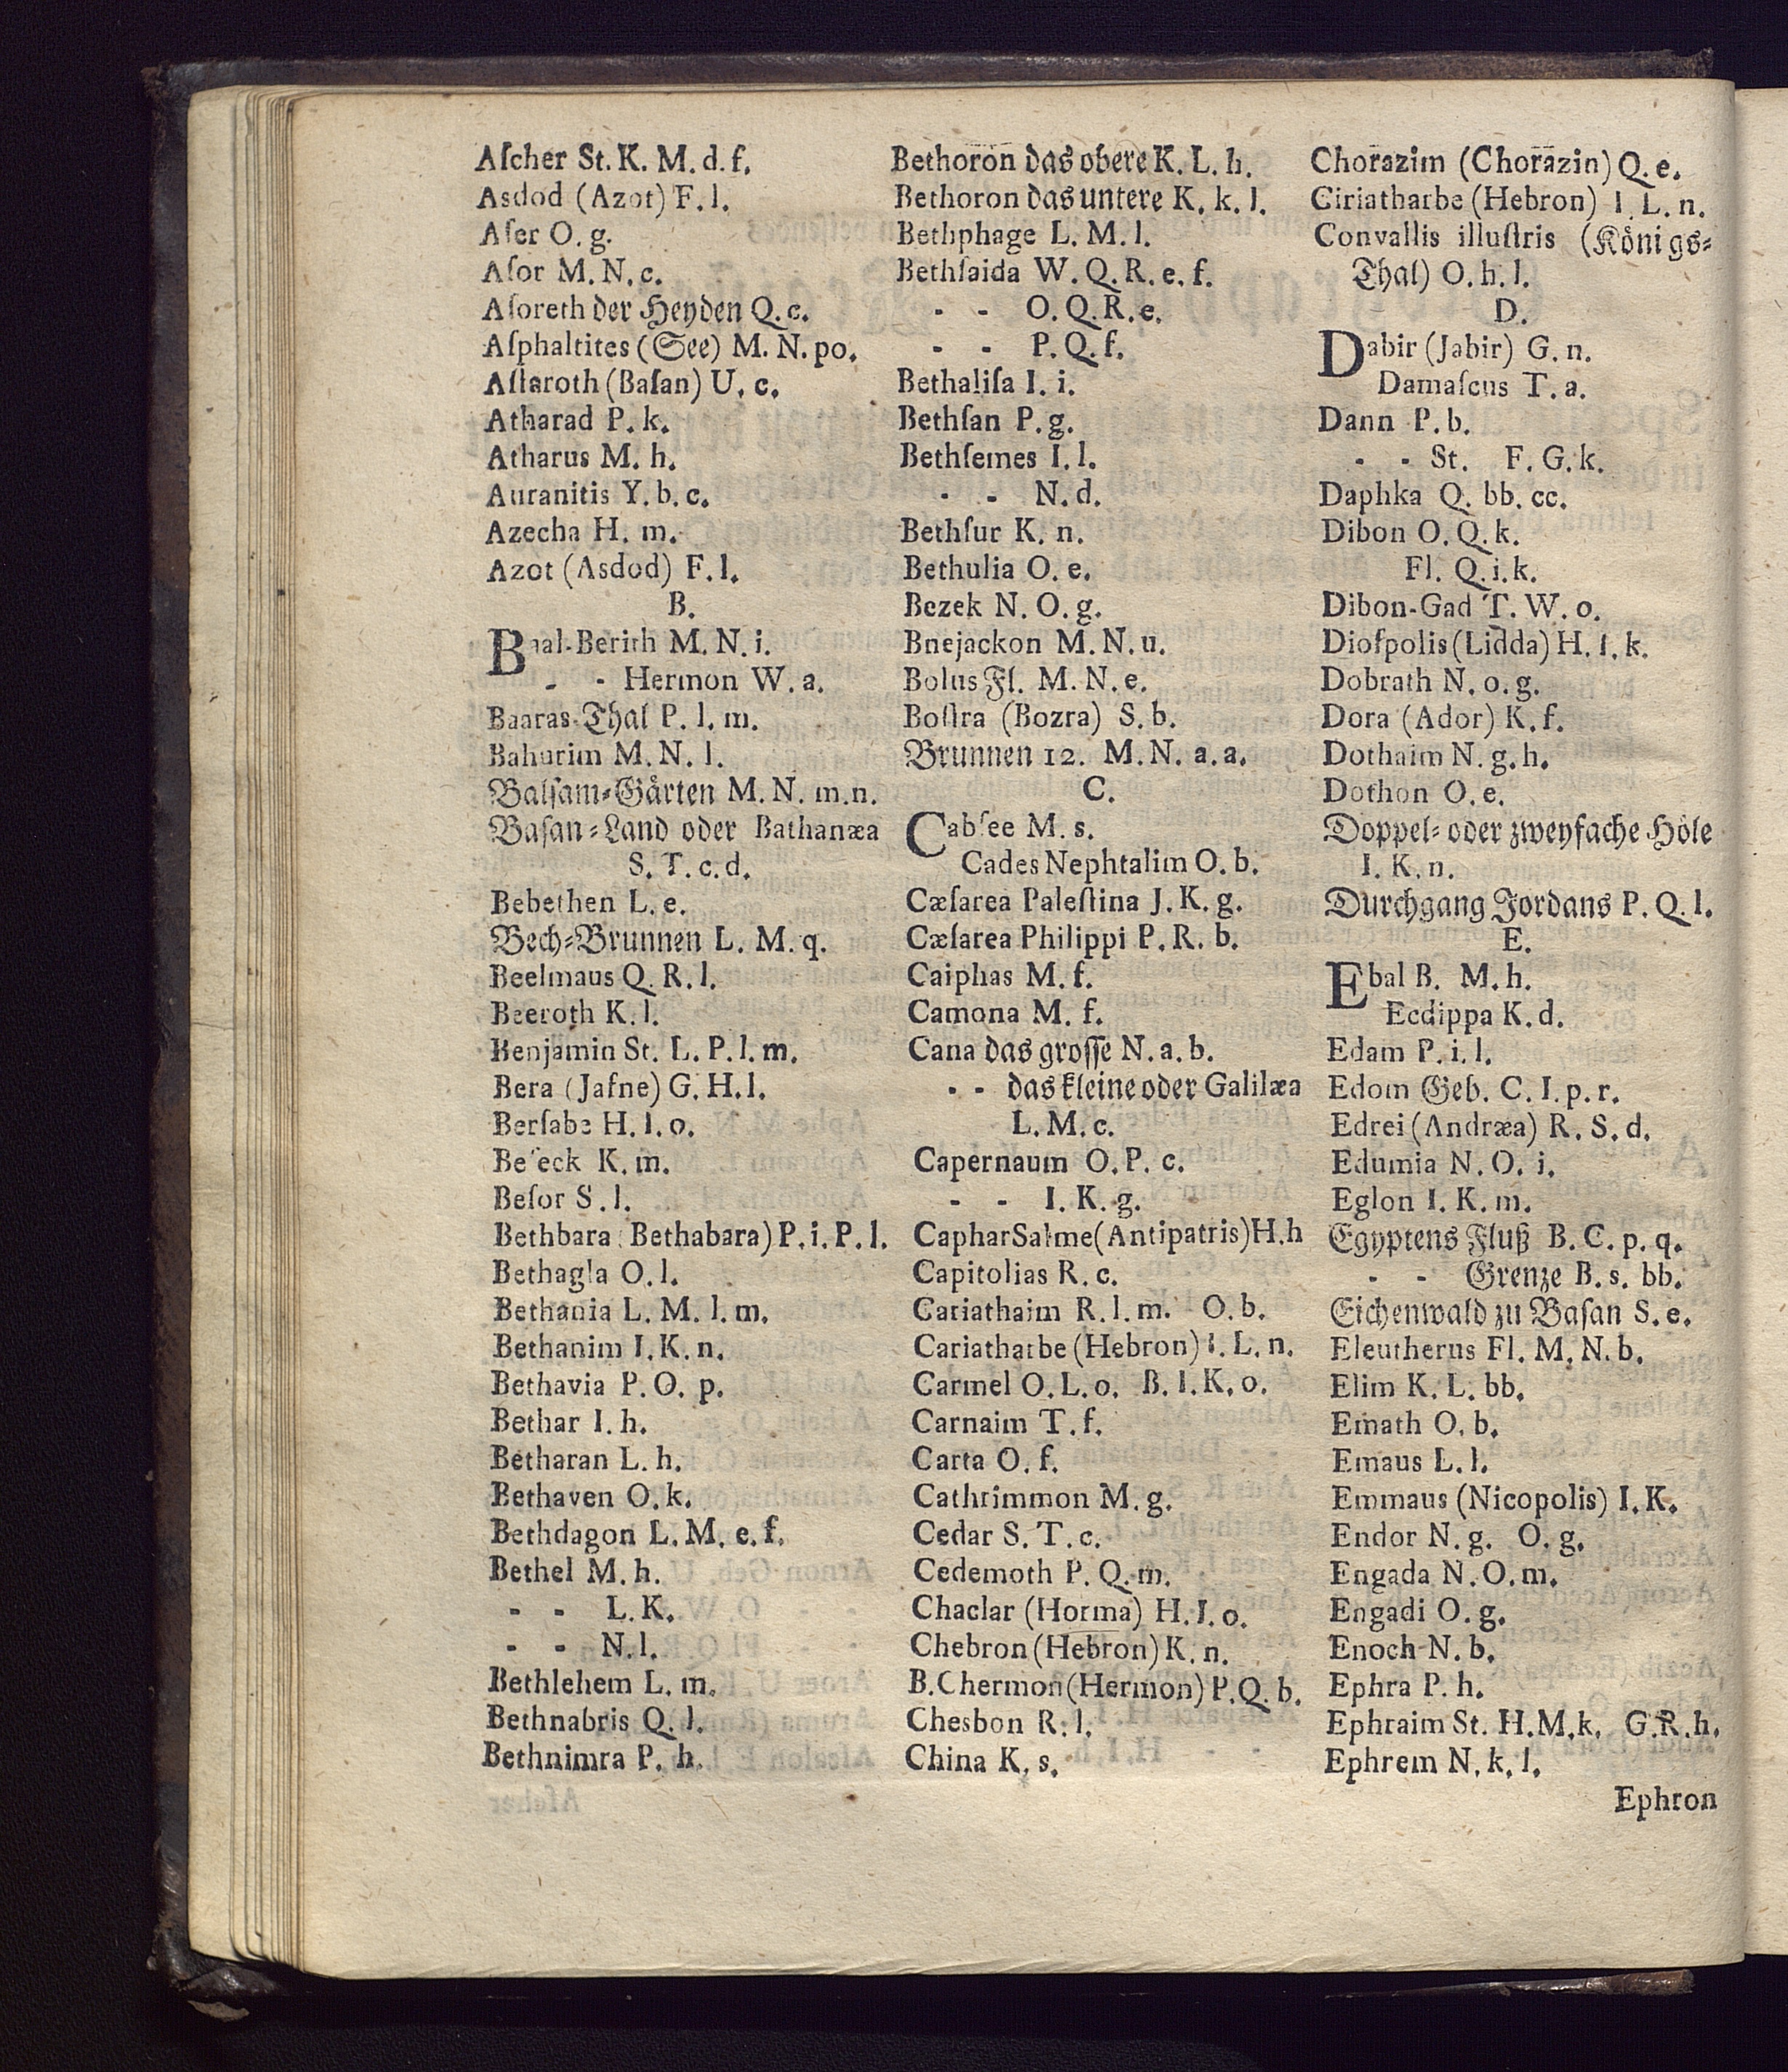 Aſcher St. K. M. d. f.
Asdod (Azot) F. l.
Aſer O. g.
Aſor M. N. c.
Aſoreth der Heyden Q. c.
Aſphaltites (See) M. N. po.
Aſtaroth (Baſan) U. c.
Atharad P. k.
Atharus M. h.
Auranitis Y. b. c.
Azecha H. m.
Azot (Asdod) F. l.
B.
Baal-Berith M. N. i.
- - Hermon W. a.
Baaras-Thal P. l. m.
Bahurim M. N. l.
Balſam-Gaͤrten M. N. m.n.
Baſan-Land oder Bathanæa
S. T. c. d.
Bebethen L. e.
Bech-Brunnen L. M. q.
Beelmaus Q. R. l.
Beeroth K. l.
Benjamin St. L. P. l. m.
Bera (Jafne) G. H. l.
Berſabe H. I. o.
Beſeck K. m.
Beſor S. l.
Bethbara (Bethabara) P. i. P. l.
Bethagla O. l.
Bethania L. M. l. m.
Bethanim I. K. n.
Bethavia P. O. p.
Bethar I. h.
Betharan L. h.
Bethaven O. k.
Bethdagon L. M. e. f.
Bethel M. h.
- - L. K.
- - N. l.
Bethlehem L. m.
Bethnabris Q. l.
Bethnimra P. h.
Bethoron das obere K. L. h.
Bethoron das untere K. k. l.
Bethphage L. M. l.
Bethſaida W. Q. R. e. f.
- - O. Q. R. e.
- - P. Q. f.
Bethaliſa I. i.
Bethſan P. g.
Bethſemes I. l.
- - N. d.
Bethſur K. n.
Bethulia O. e.
Bezek N. O. g.
Bnejackon M. N. u.
Bolus Fl. M. N. e.
Boſtra (Bozra) S. b.
Brunnen 12. M. N. a. a.
C.
Cabſee M. s.
Cades Nephtalim O. b.
Cæſarea Paleſtina J. K. g.
Cæſarea Philippi P. R. b.
Caiphas M. f.
Camona M. f.
Cana das groſſe N. a. b.
- - das kleine oder Galilæa
L. M. c.
Capernaum O. P. c.
- - I. K. g.
Caphar Salme (Antipatris) H. h
Capitolias R. c.
Cariathaim R. l. m. O. b.
Cariatharbe (Hebron) I. L. n.
Carmel O. L. o. B. I. K. o.
Carnaim T. f.
Carta O. f.
Cathrimmon M. g.
Cedar S. T. c.
Cedemoth P. Q. m.
Chaclar (Horma) H. I. o.
Chebron (Hebron) K. n.
B. Chermon (Hermon) P. Q. b.
Chesbon R. l.
China K. s.
Chorazim (Chorazin) Q. e.
Ciriatharbe (Hebron) I. L. n.
Convallis illuſtris (Koͤnigs-
Thal) O. h. l.
D.
Dabir (Jabir) G. n.
Damaſcus T. a.
Dann P. b.
- - St. F. G. k.
Daphka Q. bb. cc.
Dibon O. Q. k.
Fl. Q. i. k.
Dibon-Gad T. W. o.
Dioſpolis (Lidda) H. I. k.
Dobrath N. o. g.
Dora (Ador) K. f.
Dothaim N. g. h.
Dothon O. e.
Doppel- oder zweyfache Hoͤle
I. K. n.
Durchgang Jordans P. Q. l.
E.
Ebal B. M. h.
Ecdippa K. d.
Edam P. i. l.
Edom Geb. C. I. p. r.
Edrei (Andræa) R. S. d.
Edumia N. O. i.
Eglon I. K. m.
Egyptens Fluß B. C. p. q.
- - Grenze B. s. bb.
Eichenwald zu Baſan S. e.
Eleutherus Fl. M. N. b.
Elim K. L. bb.
Emath O. b.
Emaus L. l.
Emmaus (Nicopolis) I. K.
Endor N. g. O. g.
Engada N. O. m.
Engadi O. g.
Enoch N. b.
Ephra P. h.
Ephraim St. H. M. k. G. R. h.
Ephrem N. k. l.
Ephron